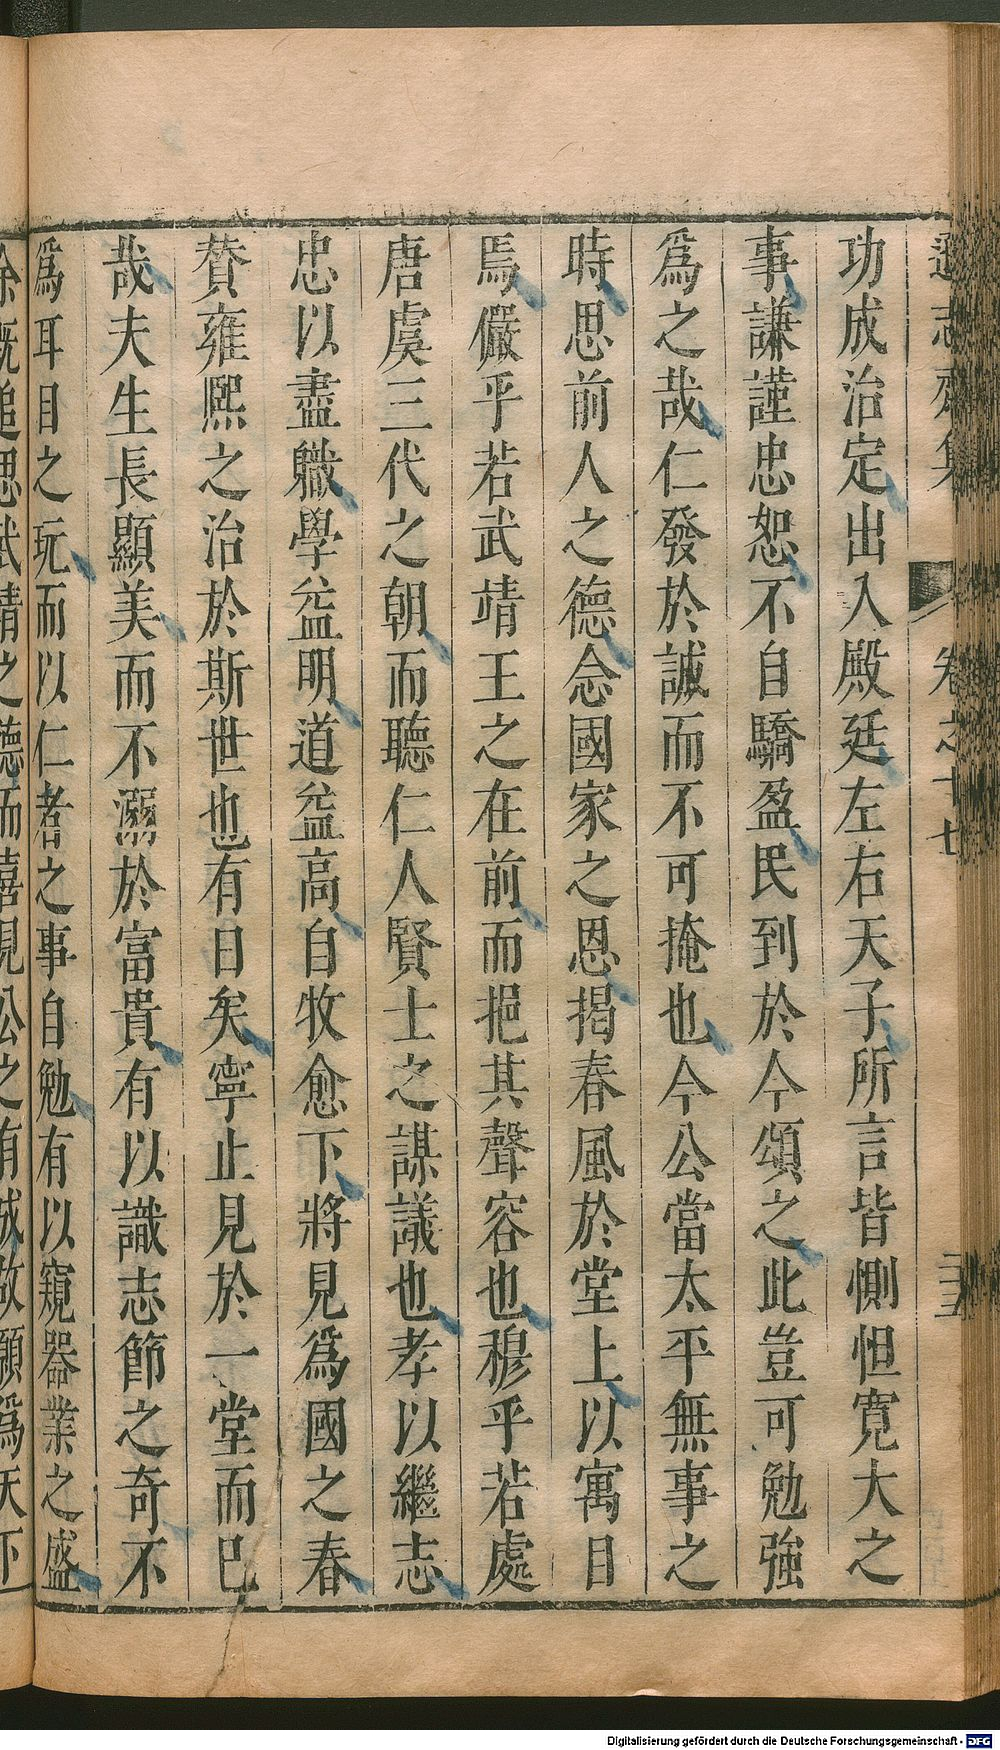 遜志齋集 卷之十七
功成治定出入殿廷左右天子所言皆惻怛寛大之
事謙謹忠恕不自驕盈民到於今頌之此豈可勉強
爲之哉仁發於誠而不可掩也今公當太平無事之
時思前人之德念國家之恩揭春風於堂上以寓目
焉儼乎若武靖王之在前而挹其聲容也穆乎若處
唐虞三代之朝而聽仁人賢士之謀議也孝以繼志
忠以盡職學益明道益高自牧愈下將見爲國之春
賛雍熙之治於斯世也有日矣寧止見於一堂而已
哉夫生長顯美而不溺於富貴有以識志節之奇不
爲耳目之玩而以仁者之事自勉有以窺器業之盛
余既追思武靖之德而喜見公之有誠故願爲天下
Digitalisierung gefördert durch die Deutsche Forschungsgemeinschaft - DFG